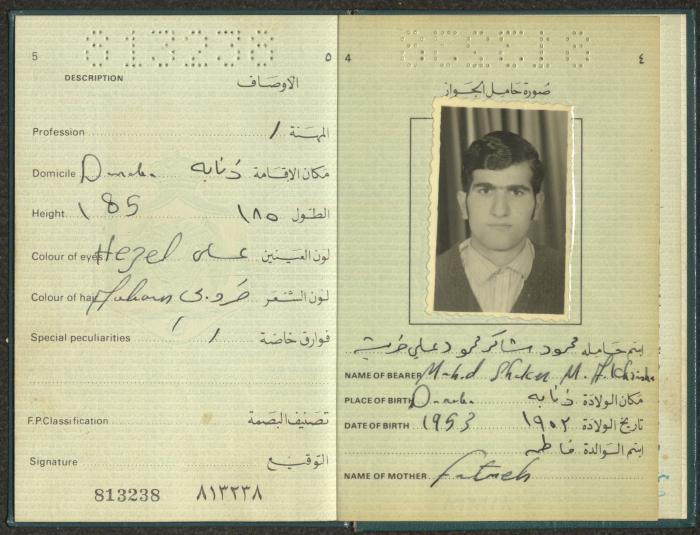 813238
5 ٥
DESCRIPTION الأوصاف
Profession / المهنة
Domicile دنابه مكان الإقامة
Height 185 ١٨٥ الطول
Colour of eyes Hezel عسلي لون العينين
Colour of hair لون الشعر
Special peculiarities / / فوارق خاصة
F.P.Classification تصنيف البصمة
Signature التوقيع
813238 ٨١٣٢٣٨
4 ٤
صورة حامل الجواز
إسم حامله محمود شاكر محمود علي
NAME OF BEARER Mahd Shaker M. A.
PLACE OF BIRTH دنابه مكان الولادة
DATE OF BIRTH 1953 ١٩٥٣ تاريخ الولادة
إسم الوالدة فاطمه
NAME OF MOTHER Fatmeh